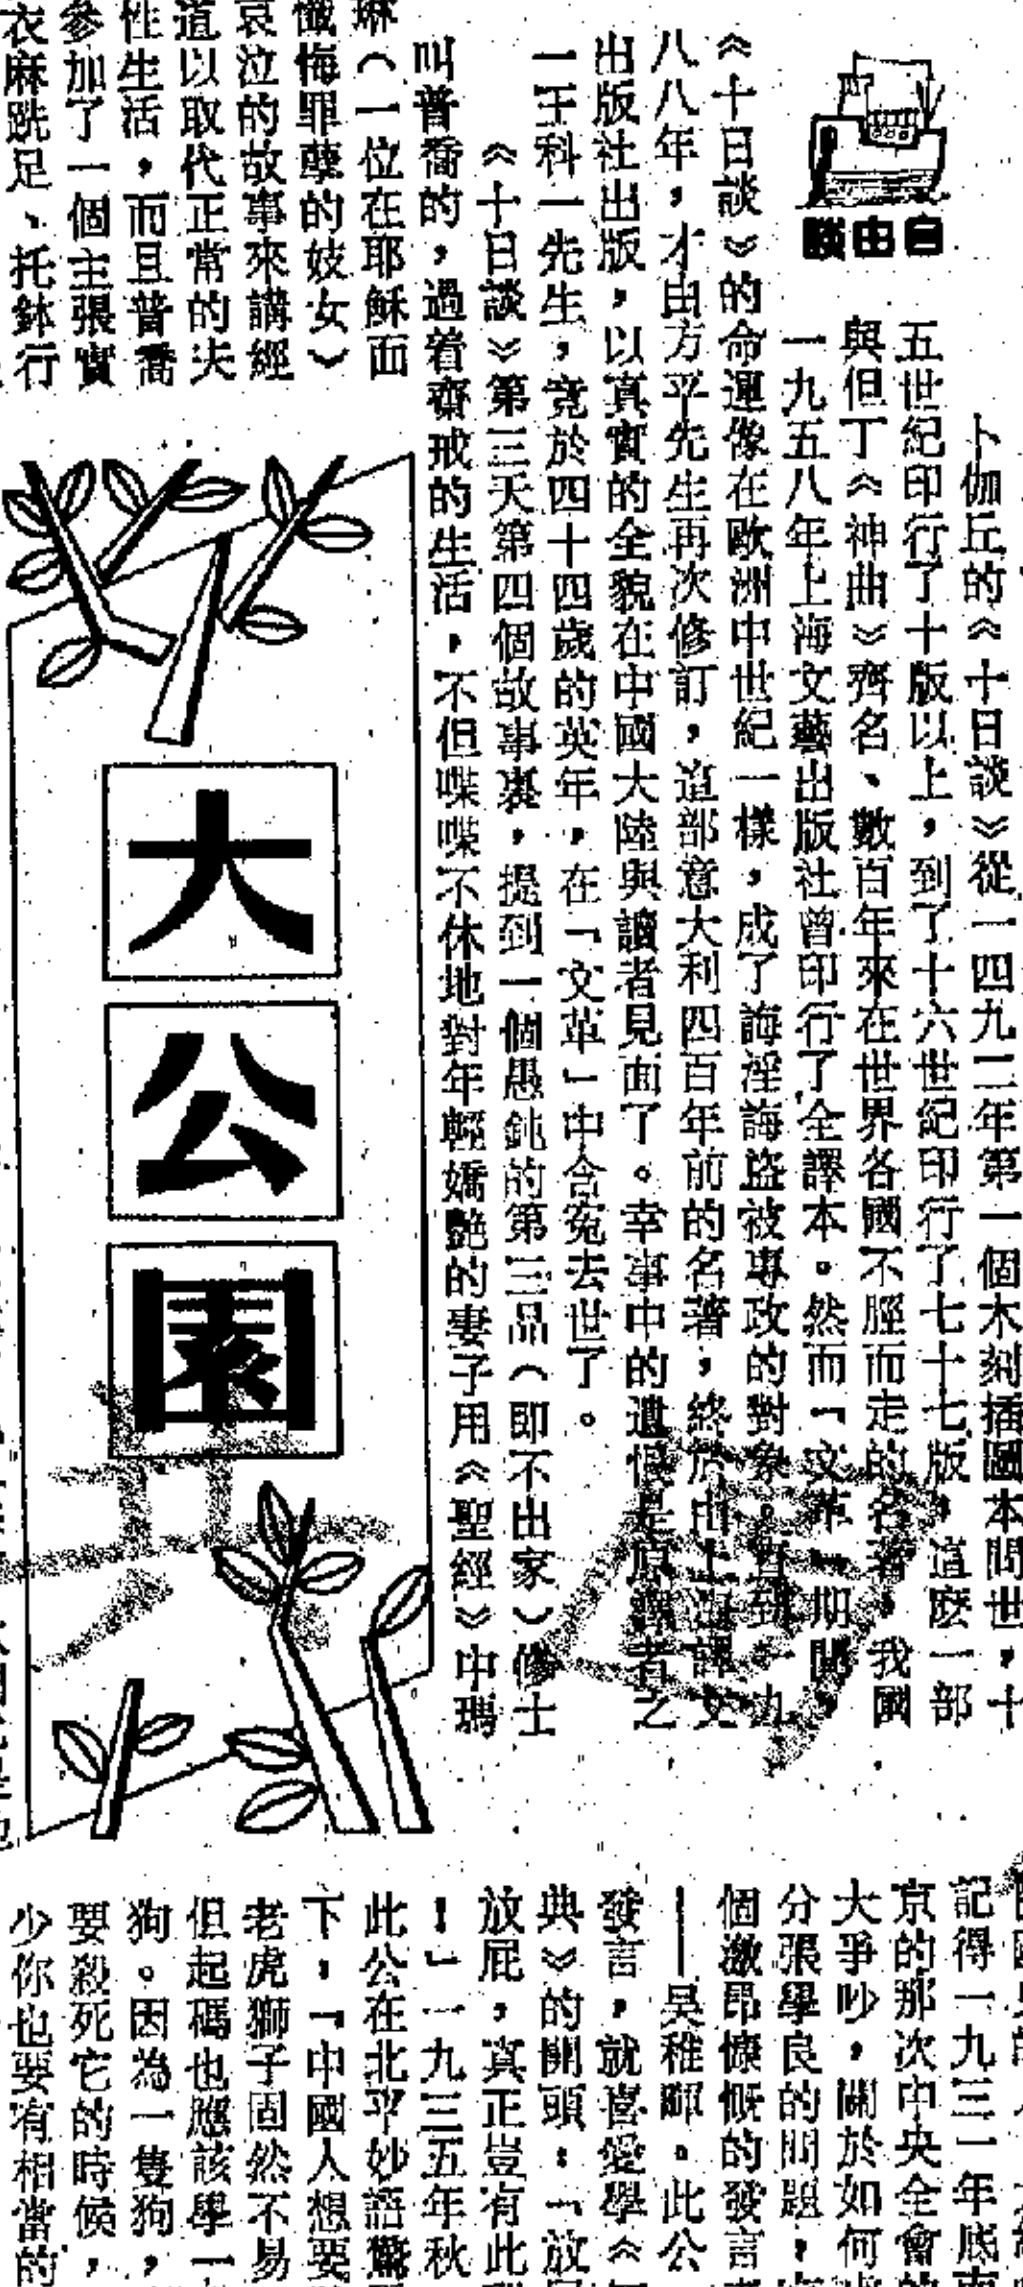 自由談
卜伽丘的《十日談》從一四九二年第一個木刻插圖本問世，十
五世紀印行了十版以上，到了十六世紀印行了七十七版，這麽一部
與但丁《神曲》齊名、數百年來在世界各國不脛而走的名著，我國
一九五八年上海文藝出版社曾印行了全譯本。然而「文革」期間，
《十日談》的命運像在歐洲中世紀一樣，成了誨淫誨盜被專政的對象。直到一九
八八年，才由方平先生再次修訂，這部意大利四百年前的名著，終於由上海譯文
出版社出版，以真實的全貌在中國大陸與讀者見面了。幸事中的遺憾是原譯者之
一王科一先生，竟於四十四歲的英年，在「文革」中含寃去世了。
《十日談》第三天第四個故事裏，提到一個愚鈍的第三品（即不出家）修士
叫普喬的，過着齋戒的生活，不但喋喋不休地對年輕嬌艷的妻子用《聖經》中瑪
琳（一位在耶穌面
懺悔罪孽的妓女）
哀泣的故事來講經
道以取代正常的夫
性生活，而且普喬
參加了一個主張實
衣麻跣足、托鉢行
大公園
記得一九三一年底南
京的那次中央全會
大爭吵，關於如何
分張學良的問題，
個激昂慷慨的發言
——吳稚暉。此公
發言，就喜愛學《
典》的開頭：「放
放屁，真正豈有此
！」一九三五年秋
此公在北平妙語驚
下，「中國人想要
老虎獅子固然不易
但起碼也應該學一
狗。因為一隻狗，
要殺死它的時候，
少你也要有相當的